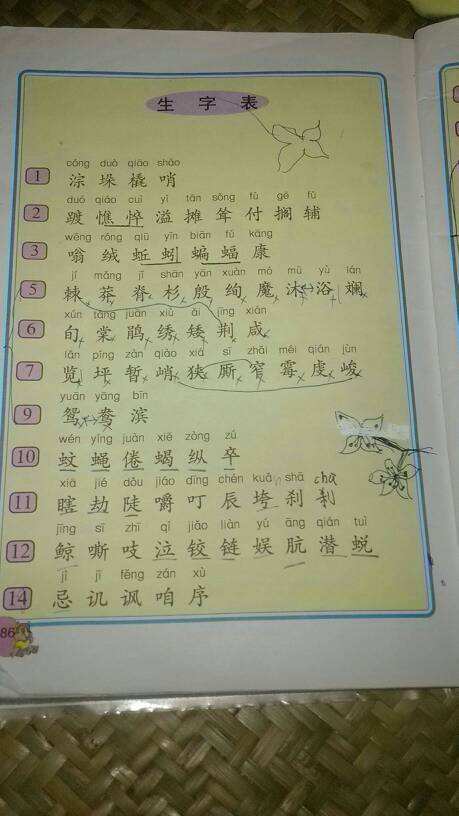 生字表
cóng duǒ qiāo shào
1 淙 垛 橇 哨
duó qiáo cuì yì tān sǒng fù gē fǔ
2 踱 憔 悴 溢 摊 耸 付 搁 辅
wēng róng qiū yǐn biān fú kāng
3 嗡 绒 蚯 蚓 蝙 蝠 康
jí mǎng jǐ shān yān xuàn mó mù yù lán
5 棘 莽 脊 杉 殷 绚 魔 沐 浴 斓
xún táng juān xiù ǎi jīng xián
6 旬 棠 鹃 绣 矮 荆 咸
lǎn píng zàn qiào xiá sī zhǎi méi qián jùn
7 览 坪 暂 峭 狭 厮 窄 霉 虔 峻
yuān yāng bīn
9 鸳 鸯 滨
wén yíng juàn xiē zòng zú
10 蚊 蝇 倦 蝎 纵 卒
xiā jié dǒu jiáo dīng chén kuǎ shā chà
11 瞎 劫 陡 嚼 叮 辰 垮 刹 刹
jīng sī zhī qì jiǎo liàn yú āng qián tuì
12 鲸 嘶 吱 泣 铰 链 娱 肮 潜 蜕
jì jī fěng zán xù
14 忌 讥 讽 咱 序
86